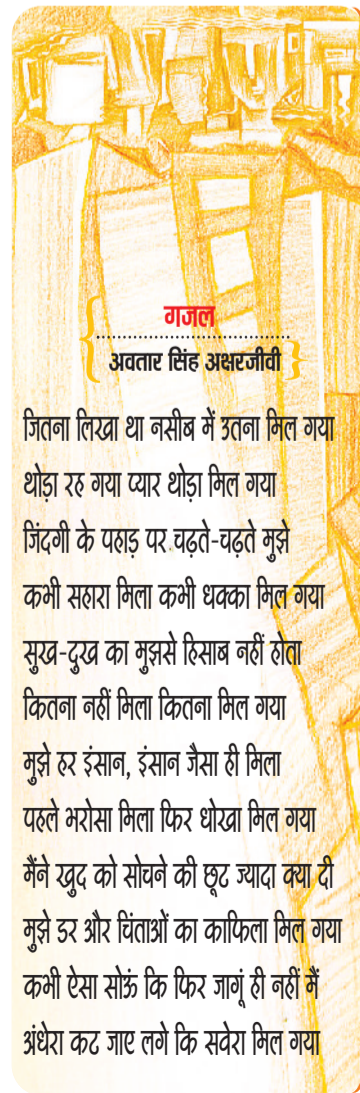 गजल
अवतार सिंह अक्षरजीवी
जितना लिखा था नसीब में उतना मिल गया
थोड़ा रह गया प्यार थोड़ा मिल गया
जिंदगी के पहाड़ पर चढ़ते-चढ़ते मुझे
कभी सहारा मिला कभी धक्का मिल गया
सुख-दुख का मुझसे हिसाब नहीं होता
कितना नहीं मिला कितना मिल गया
मुझे हर इंसान, इंसान जैसा ही मिला
पहले भरोसा मिला फिर धोखा मिल गया
मैंने खुद को सोचने की छूट ज्यादा क्या दी
मुझे डर और चिंताओं का काफिला मिल गया
कभी ऐसा सोऊं कि फिर जागूं ही नहीं मैं
अंधेरा कट जाए लगे कि सवेरा मिल गया